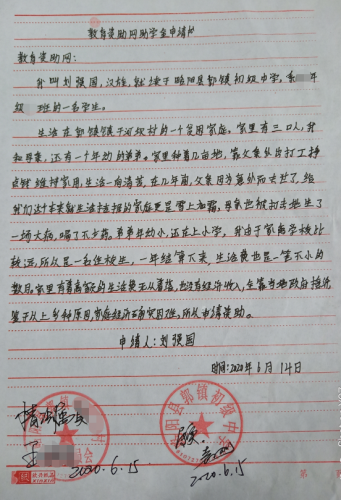 教育资助网助学金申请书
教育资助网:
我叫刘强国,汉族,就读于略阳县郭镇初级中学,
级 班的一名学生。
生活在郭镇镇干河坝村的一个贫困家庭。家里有三口人,我
和母亲,还有一个年幼的弟弟。家里种着几亩地,靠父亲外出打工挣
点钱维持家用,生活一向清苦,在几年前,父亲因为意外而去世了,给
我们这个本来就生活拮据的家庭更是雪上加霜,母亲也被打击地生了
一场大病,喝了不少药。弟弟年幼小,还在上小学,我由于家离学校比
较远,所以是一名住校生,一年结算下来,生活费也是一笔不小的
数目。家里有着高额的生活费无从着落,也没有经济收入,全靠当地政府接济
鉴于以上多种原因,家庭经济正确实困难,所以申请资助。
申请人:刘强国
时间:2020年6月14日
情况属实
2020.6.15
属实
略阳县郭镇初级中学
2020.6.15